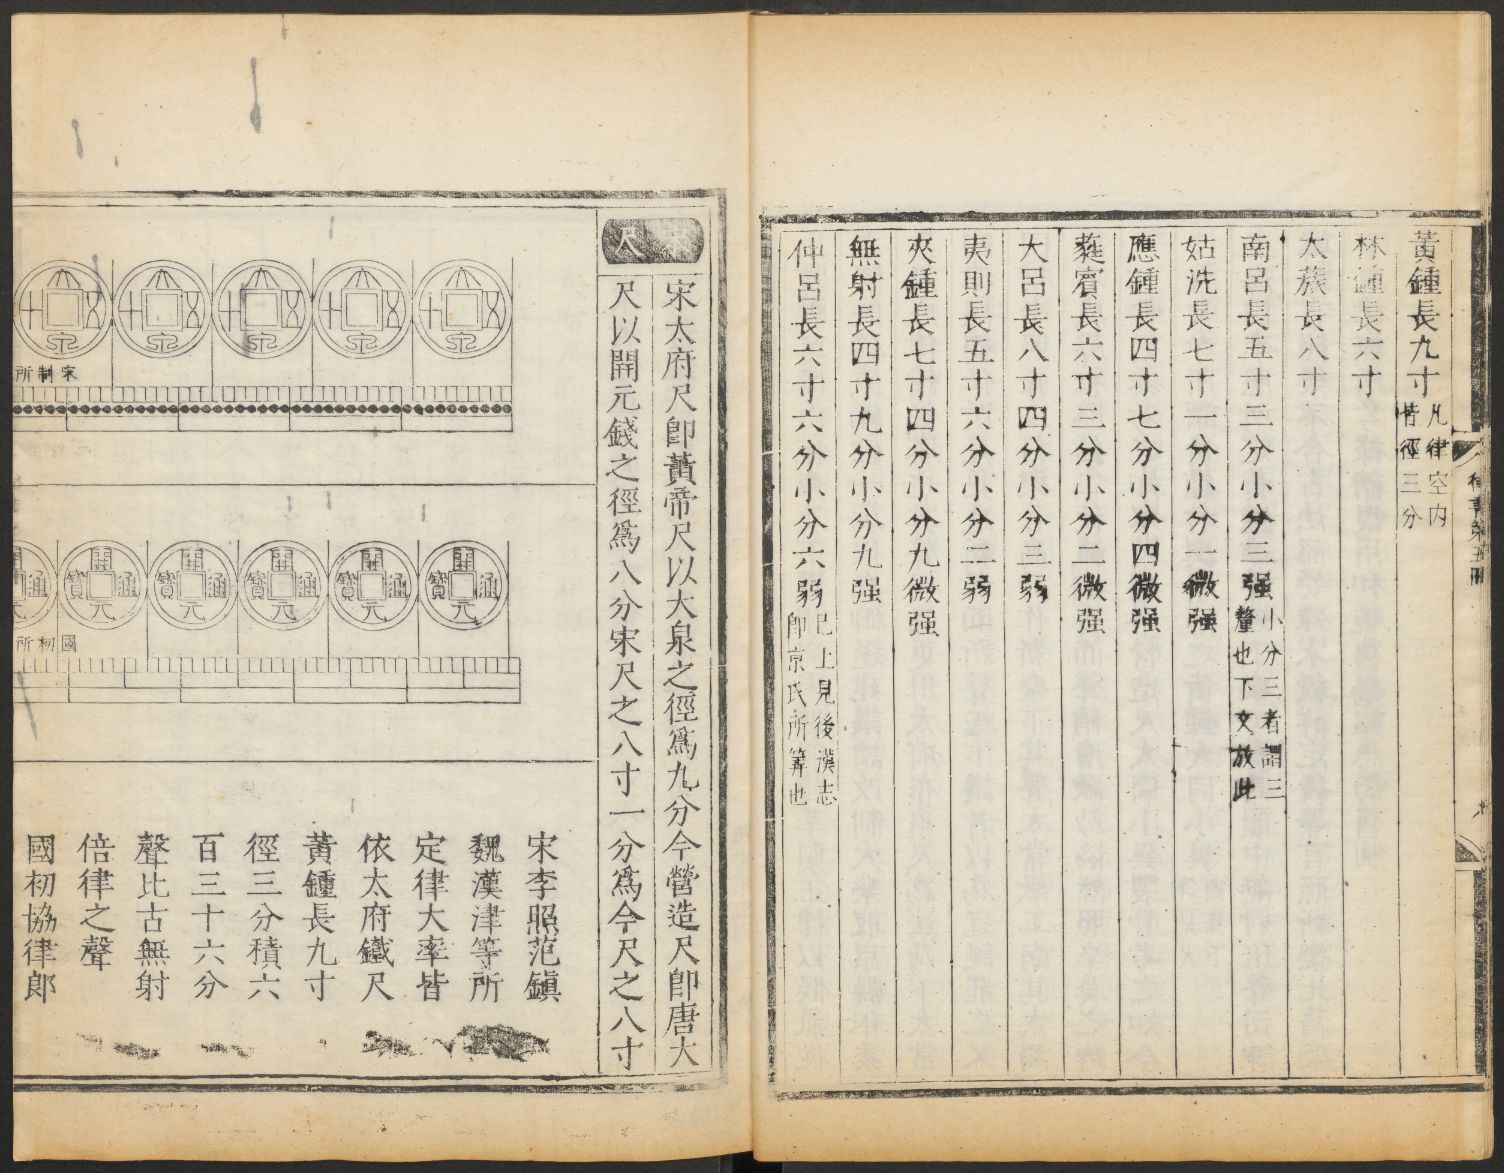 黃鍾長九寸凡律空內
皆徑三分
林鍾長六寸
太蔟長八寸
南呂長五寸三分小分三强小分三者謂三
釐也下文放此
姑洗長七寸一分小分一微强
應鍾長四寸七分小分四微强
蕤賓長六寸三分小分二微强
大呂長八寸四分小分三弱
夷則長五寸六分小分二弱
夾鍾長七寸四分小分九微强
無射長四寸九分小分九强
仲呂長六寸六分小分六弱已上見後漢志
卽京氏所筭也
律書第五冊
尺
宋太府尺卽黃帝尺以大泉之徑爲九分今營造尺卽唐大
尺以開元錢之徑爲八分宋尺之八寸一分爲今尺之八寸
大泉五十
大泉五十
大泉五十
大泉五十
大泉五十
宋制所
開元通寶
開元通寶
開元通寶
開元通寶
開元通寶
國初所
宋李照范鎮
魏漢津等所
定律大率皆
依太府鐵尺
黃鍾長九寸
徑三分積六
百三十六分
聲比古無射
倍律之聲
國初協律郎